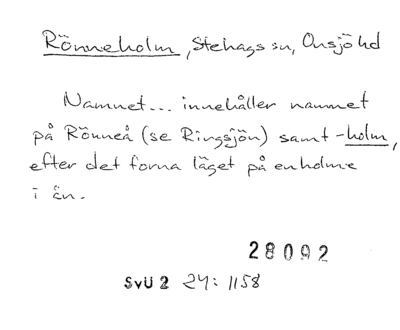 Rönneholm, Stehags sn, Onsjö hd
Namnet... innehåller namnet
på Rönneå (se Ringsjön) samt -holm,
efter det forna läget på en holme
i ån.
28092
SvU 2 24: 1158